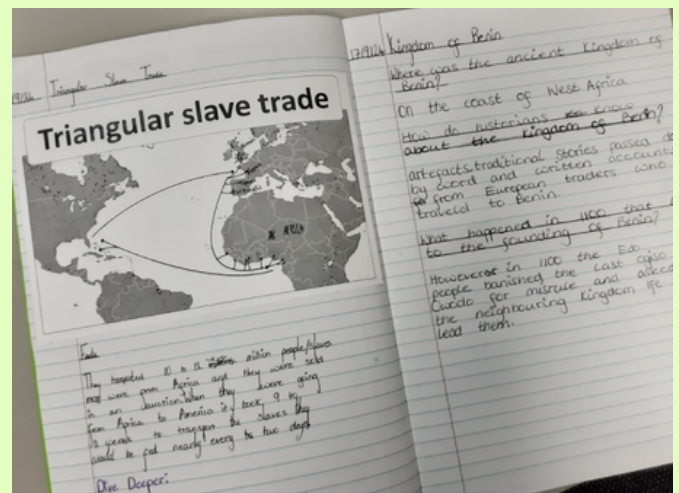 Triangular Slave Trade
Triangular slave trade
Facts
They transported 10 to 12 million people/slaves
most were from Africa and they were sold
in an
When they were going
from Africa to America it took 9 to
weeks to transport the slaves they
would be fed nearly every two days
Dive Deeper:
17/9/24 Kingdom of Benin
Where was the ancient Kingdom of
Benin?
On the coast of West Africa
How do historians know
about the kingdom of Benin?
artefacts, traditional stories passed
by word and written accounts
from European traders who
traveld to Benin.
What happened in 1100 that
to the founding of Benin?
in 1100 the Edo
people banished the last ogiso
Owodo for misrule and asked
the neighbouring Kingdom Ife
lead them.